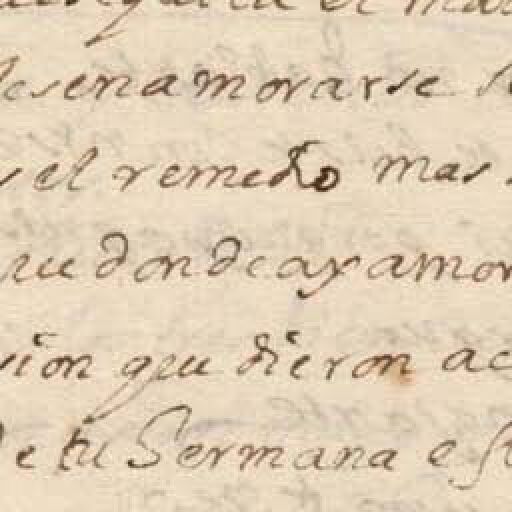 el
desenamorarse
s el remedio mas
que donde ay amor
sion que dieron ac
de tu Sermana es